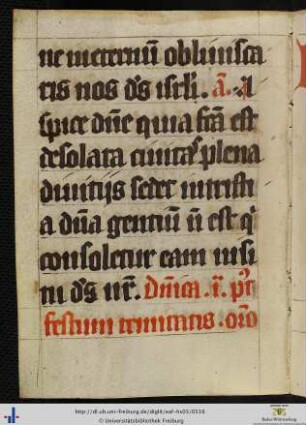 ne in eternū obliuisca
ris nos ds̄ isrl̄. a͞. A
spice dn̄e quia fc̄a est
desolata ciuitas plena
diuitijs sedet in tristi
a dn̄a gentiū n̄ est qͥ
consoletur eam nisi
tu ds̄ nr̄. Dn̄ica .i͞. pꝰt
festum trinitatis . or̄o
http://dl.ub.uni-freiburg.de/diglit/
© Universitätsbibliothek Freiburg
Baden-Württemberg